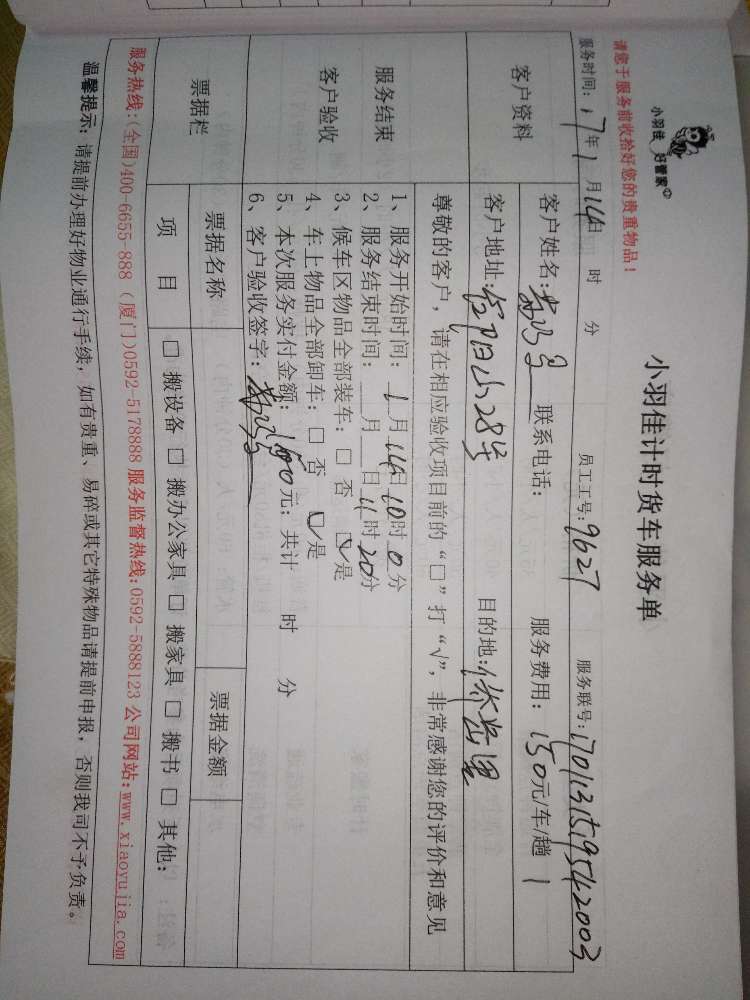 小羽佳 好管家
小羽佳计时货车服务单
请您于服务前收拾好您的贵重物品！
员工工号：9627
服务联号：17011315195142003
服务时间：17年1月14日 时 分
客户资料
客户姓名： 联系电话： 服务费用：150元/车/趟 1
客户地址：28号 目的地：
尊敬的客户，请在相应验收项目前的“□”打“√”，非常感谢您的评价和意见
服务结束
客户验收
1、服务开始时间：1月14日10时0分
2、服务结束时间： 月 日11时20分
3、候车区物品全部装车：□ 否 ☑是
4、车上物品全部卸车：□ 否 ☑是
5、本次服务实付金额：元；共计 时 分
6、客户验收签字：
票据栏
票据名称
票据金额
项 目
□ 搬设备 □ 搬办公家具 □ 搬家具 □ 搬书 □ 其他：
服务热线：(全国)400-6655-888 (厦门)0592-5178888 服务监督热线：0592-5888123 公司网站：www.xiaoyujia.com
温馨提示：请提前办理好物业通行手续，如有贵重、易碎或其它特殊物品请提前申报，否则我司不予负责。